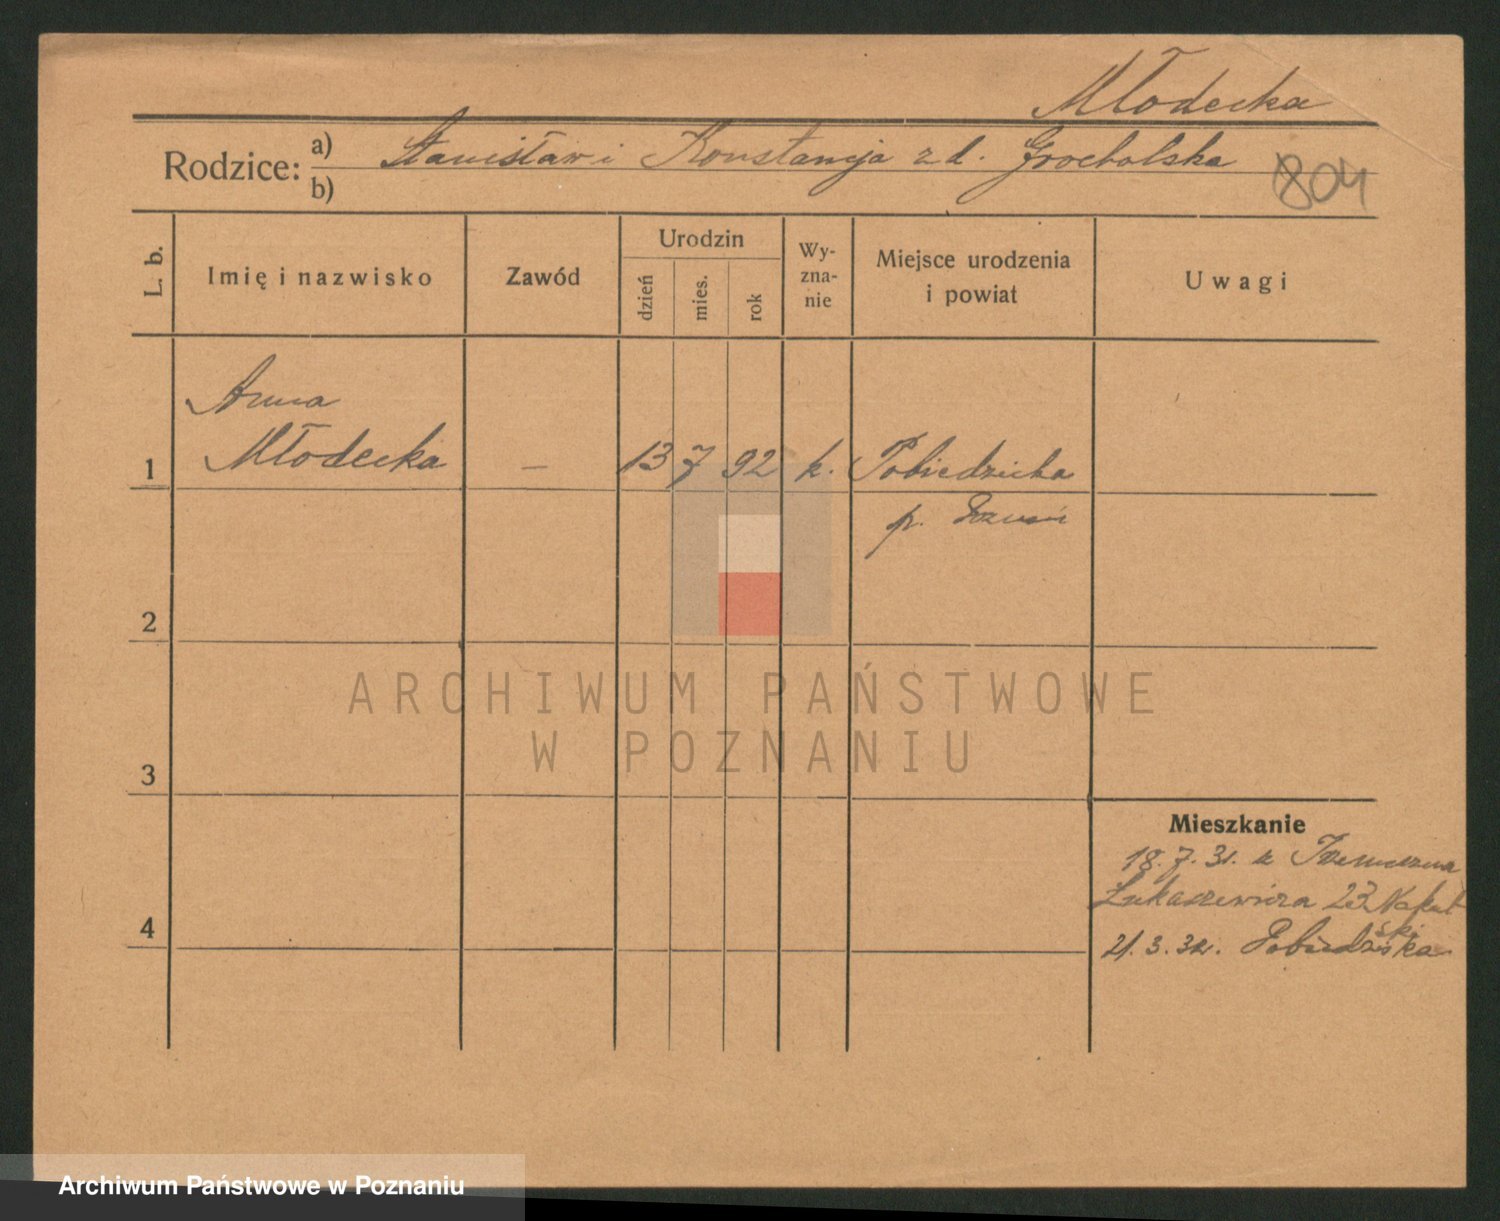 Młodecka
Rodzice: a) Stanisław i Konstancja z d. Grocholska
b)
804
L. b.
Imię i nazwisko
Zawód
Urodzin
dzień
mies.
rok
Wy-
zna-
nie
Miejsce urodzenia
i powiat
Uwagi
Anna
1 Młodecka – 13 7 92 k. Pobiedziska
p. Poznań
2
3
4
Mieszkanie
18. 7. 31. z
Łukaszewicza 23
21. 3. 32. Pobiedziska
ARCHIWUM PAŃSTWOWE
W POZNANIU
Archiwum Państwowe w Poznaniu